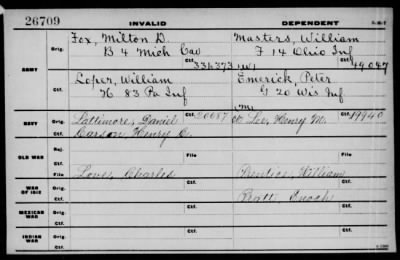 26709 INVALID DEPENDENT
ARMY
Orig. Fox, Milton D. Masters, William
B 4 Mich Cav F 14 Ohio Inf
Ctf. 336373 Ctf. 49047
Orig. Loper, William Emerick, Peter
H 83 Pa Inf G 20 Wis Inf
Ctf.
NAVY
Orig. Lattimore, Daniel Ctf. Lee, Henry M. Ctf. 19940
Ctf. Carson, Henry C.
OLD WAR
Rej.
Ctf. File File
WAR OF 1812
Orig. Love, Charles Prentice, William
Ctf. Pratt, Enoch
MEXICAN WAR
Orig.
Ctf.
INDIAN WAR
Orig.
Ctf.